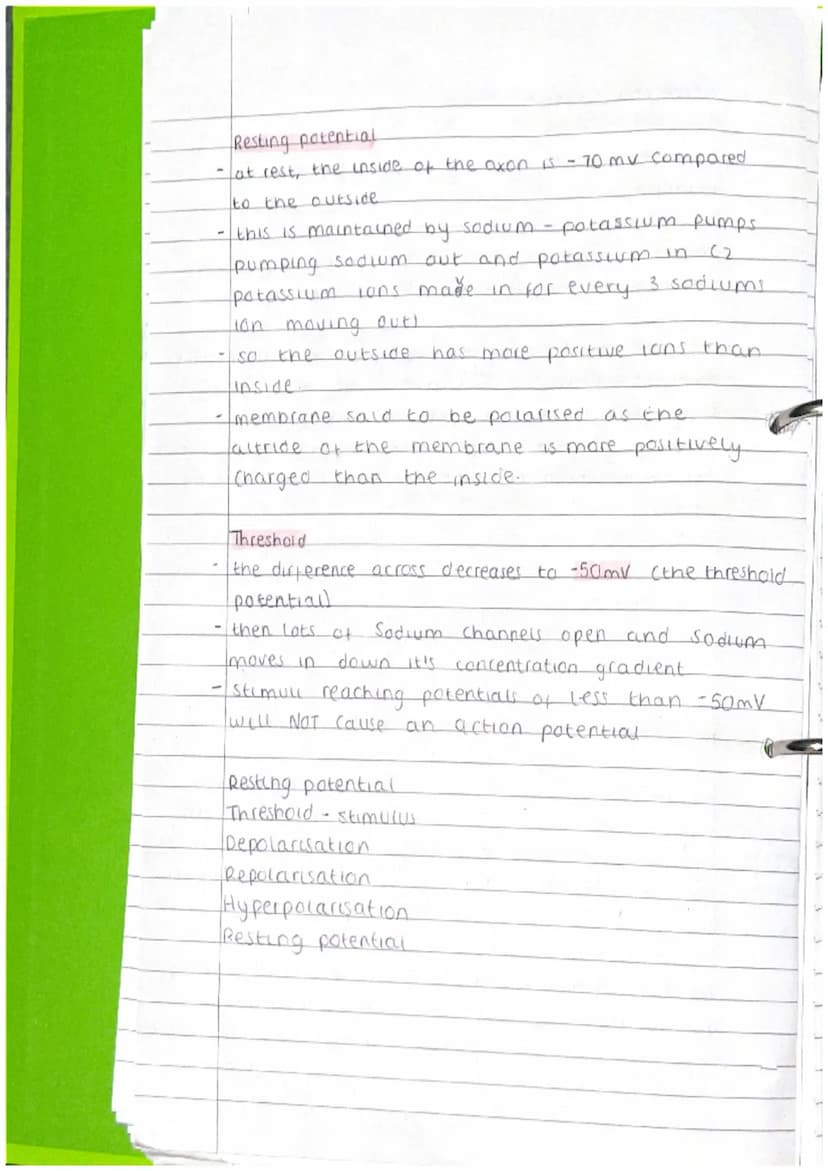 Resting potential
- at rest, the inside of the axon is -70mv compared
to the outside
- this is maintained by sodium - potassium pumps
pumping sodium out and potassium in (2
potassium ions made in for every 3 sodiums
ion moving out)
- so the outside has more positive ions than
inside.
- membrane said to be polarised as the
altride of the membrane is more positively
charged than the inside.
Threshold
- the difference across decreases to -50mV (the threshold
potential)
- then lots of Sodium channels open and sodium
moves in down it's concentration gradient
- stimuli reaching potentials of less than -50mV
will NOT cause an action potential
Resting potential
Threshold - stimulus
Depolarisation
Repolarisation
Hyperpolarisation
Resting potential